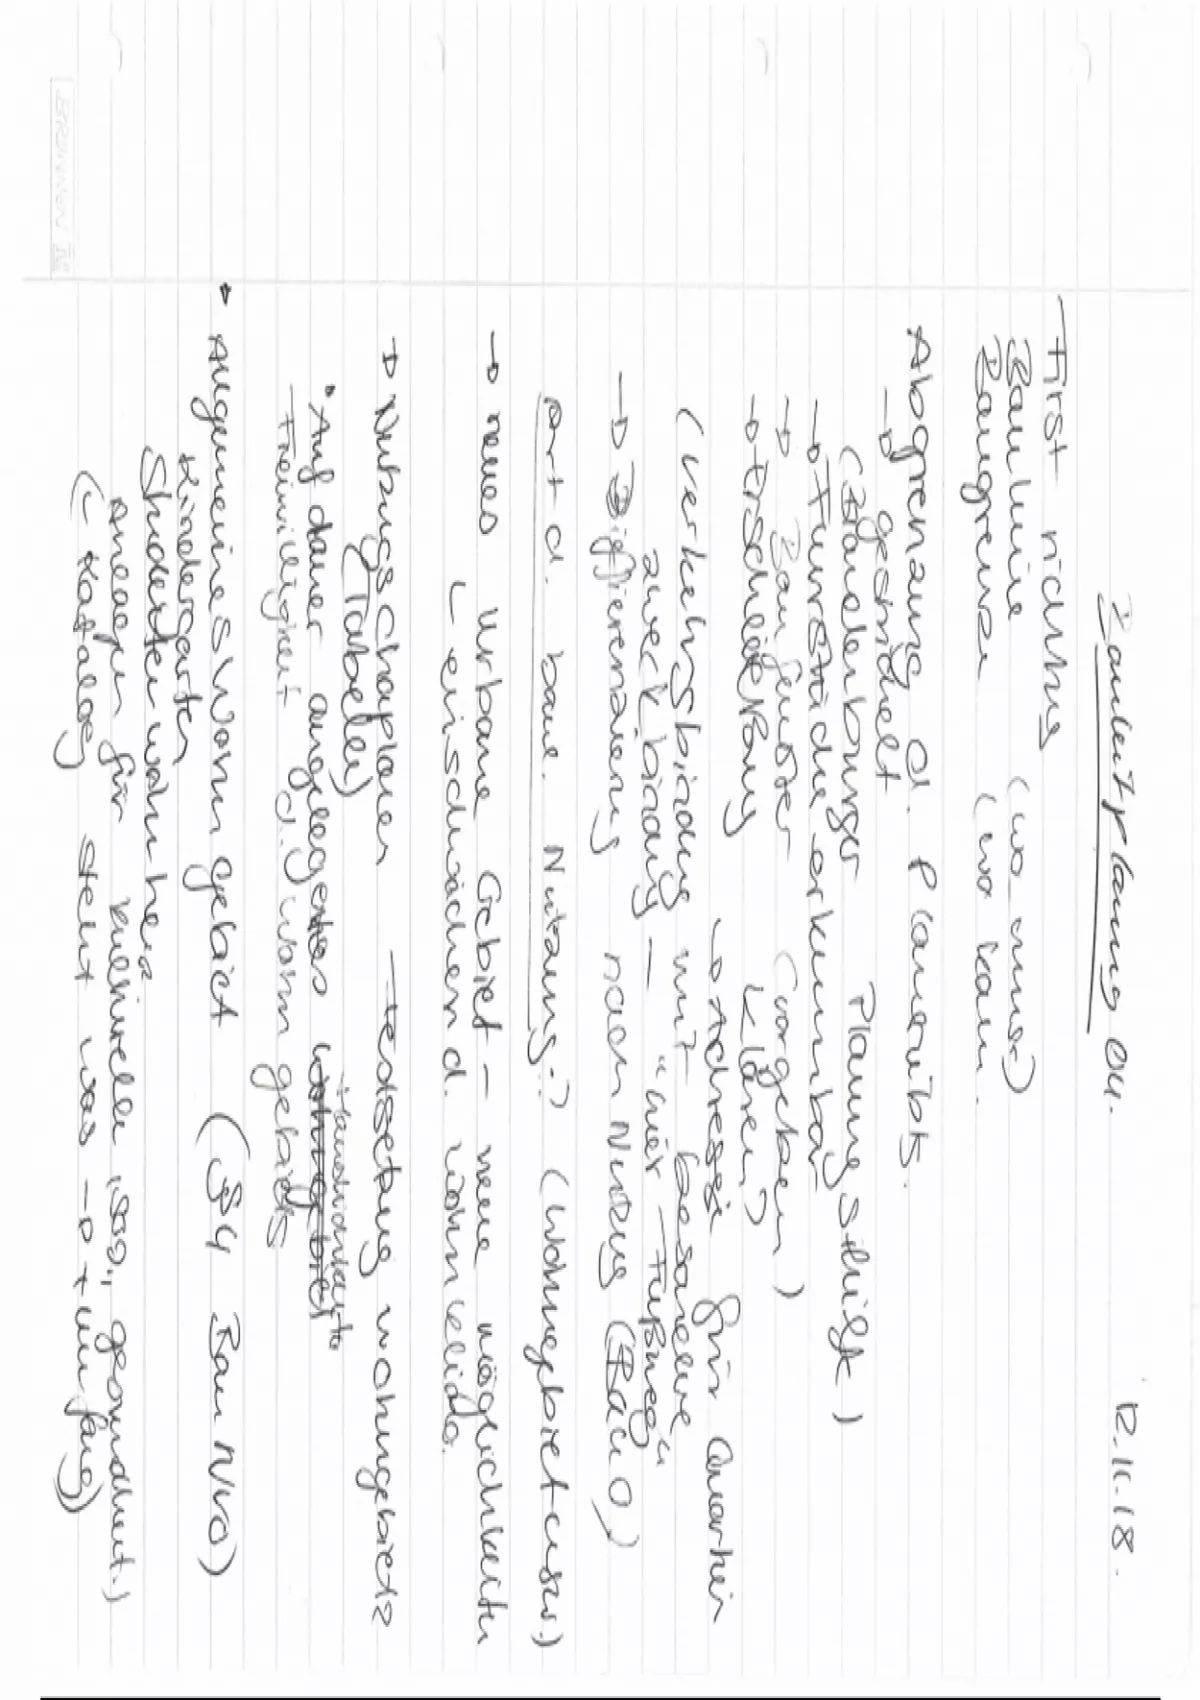 Bauleitplanung 04. 12.11.18.
First richtung
Baulinie (wo muss)
Baugrenze (wo kann.
Abgrenzung d. Plangebiets.
→ gestrichelt
(Brandenburger Planung hilft)
→ Grundstücke erkennbar
→ Baufenster (vorgeben)
→ Erschließung klären?
→ Adresse für Quartier
(Verkehrsbindung mit besondere
zweckbindung – "hier Fußweg"
→ Differenzierung nach Nutzung (BauO)
Art d. baul. Nutzung? (Wohngebiet usw.)
→ neues Urbane Gebiet – neue möglichkeiten
einschwächen d. wohn
→ Nutzungschaplonen – Festsetzung wohngebiets
(Tabelle)
• Auf dauer angelegtes wohngebiet
Freiwilligkeit d. wohngebiets
• Allgemeines Wohngebiet (§4 BauNVO)
Kindergarten
Studentenwohnhei
Anlagen für kulturelle soz., gesundheit.)
(Katalog steht was → + umfang)
BRUNNEN